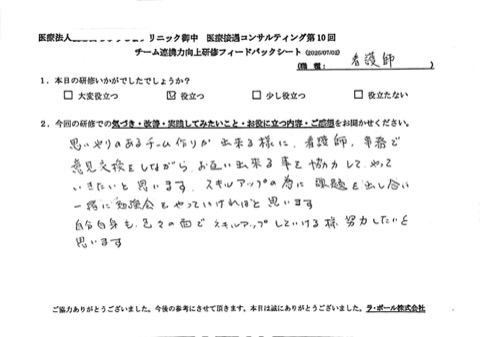 医療法人 リニック御中　医療接遇コンサルティング第10回
チーム連携力向上研修フィードバックシート (2020/07/02)
(職種: 看護師)
1．本日の研修いかがでしたでしょうか？
□ 大変役立つ　☑ 役立つ　□ 少し役立つ　□ 役立たない
2．今回の研修での気づき・改善・実践してみたいこと・お役に立つ内容・ご感想をお聞かせください。
思いやりのあるチーム作りが出来る様に、看護師、事務で
意見交換をしながら、お互い出来る事を協力して、やって
いきたいと思います。スキルアップの為に課題を出し合い
一緒に勉強会をやっていければと思います
自分自身も、色々の面でスキルアップしていける様、努力したいと
思います
ご協力ありがとうございました。今後の参考にさせて頂きます。本日は誠にありがとうございました。ラ・ポール株式会社